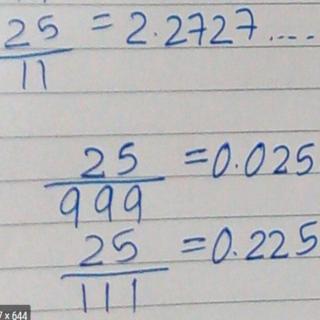 25/11 = 2.2727....
25/999 = 0.025
25/111 = 0.225
7 x 644